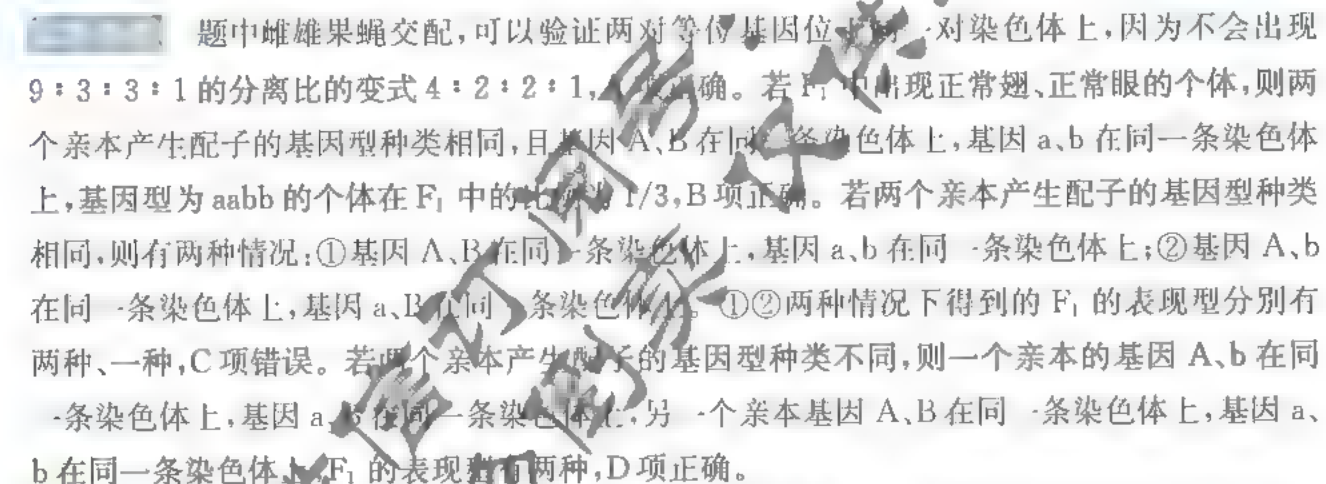 题中雌雄果蝇交配,可以验证两对等位基因位 对染色体上,因为不会出现
9∶3∶3∶1的分离比的变式4∶2∶2∶1, 确。若F₁中出现正常翅、正常眼的个体,则两
个亲本产生配子的基因型种类相同,且基因A、B在同 条染色体上,基因a、b在同一条染色体
上,基因型为aabb的个体在F₁中的 1/3,B项正确。若两个亲本产生配子的基因型种类
相同,则有两种情况:①基因A、B在同一条染色体上,基因a、b在同一条染色体上;②基因A、b
在同一条染色体上,基因a、B在同一条染色体上。①②两种情况下得到的F₁的表现型分别有
两种、一种,C项错误。若两个亲本产生配子的基因型种类不同,则一个亲本的基因A、b在同
一条染色体上,基因a、 在同一条染色体上,另一个亲本基因A、B在同一条染色体上,基因a、
b在同一条染色体上,F₁的表现型有两种,D项正确。